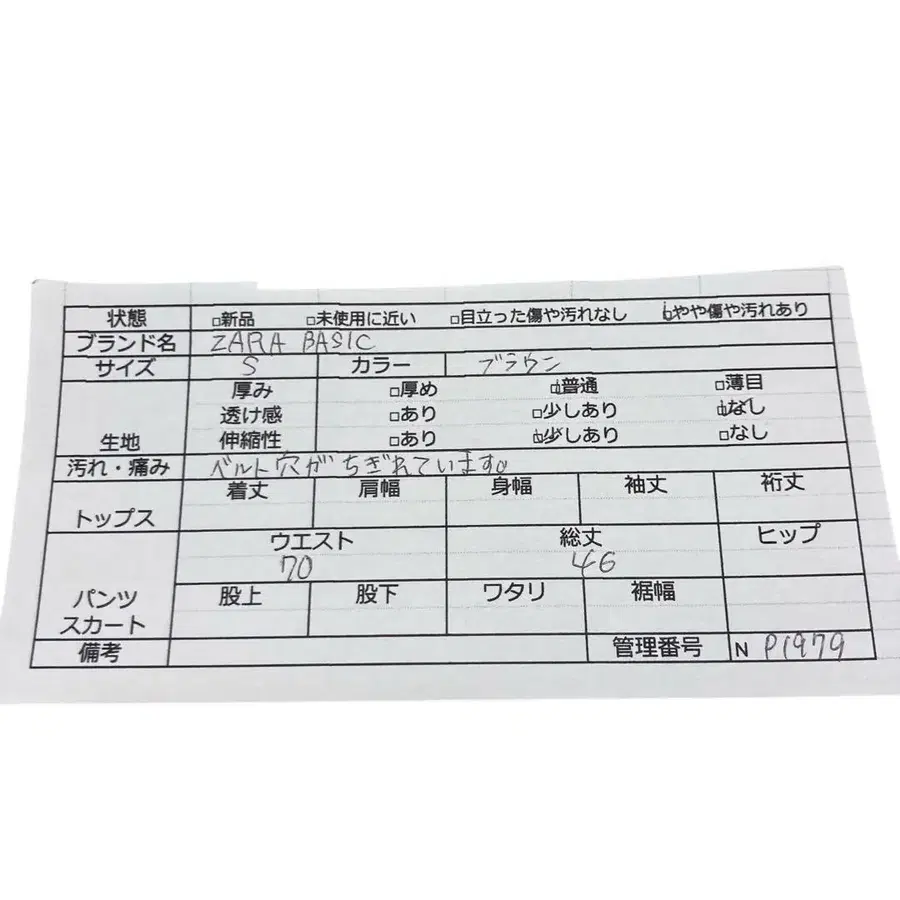 状態 □新品 □未使用に近い □目立った傷や汚れなし □やや傷や汚れあり
ブランド名 ZARA BASIC
サイズ S カラー ブラウン
厚み □厚め □普通 □薄目
透け感 □あり □少しあり □なし
生地 伸縮性 □あり □少しあり □なし
汚れ・痛み ベルト穴がちぎれています。
着丈 肩幅 身幅 袖丈 裄丈
トップス
ウエスト 総丈 ヒップ
70 46
股上 股下 ワタリ 裾幅
パンツ
スカート
備考 管理番号 N P1979